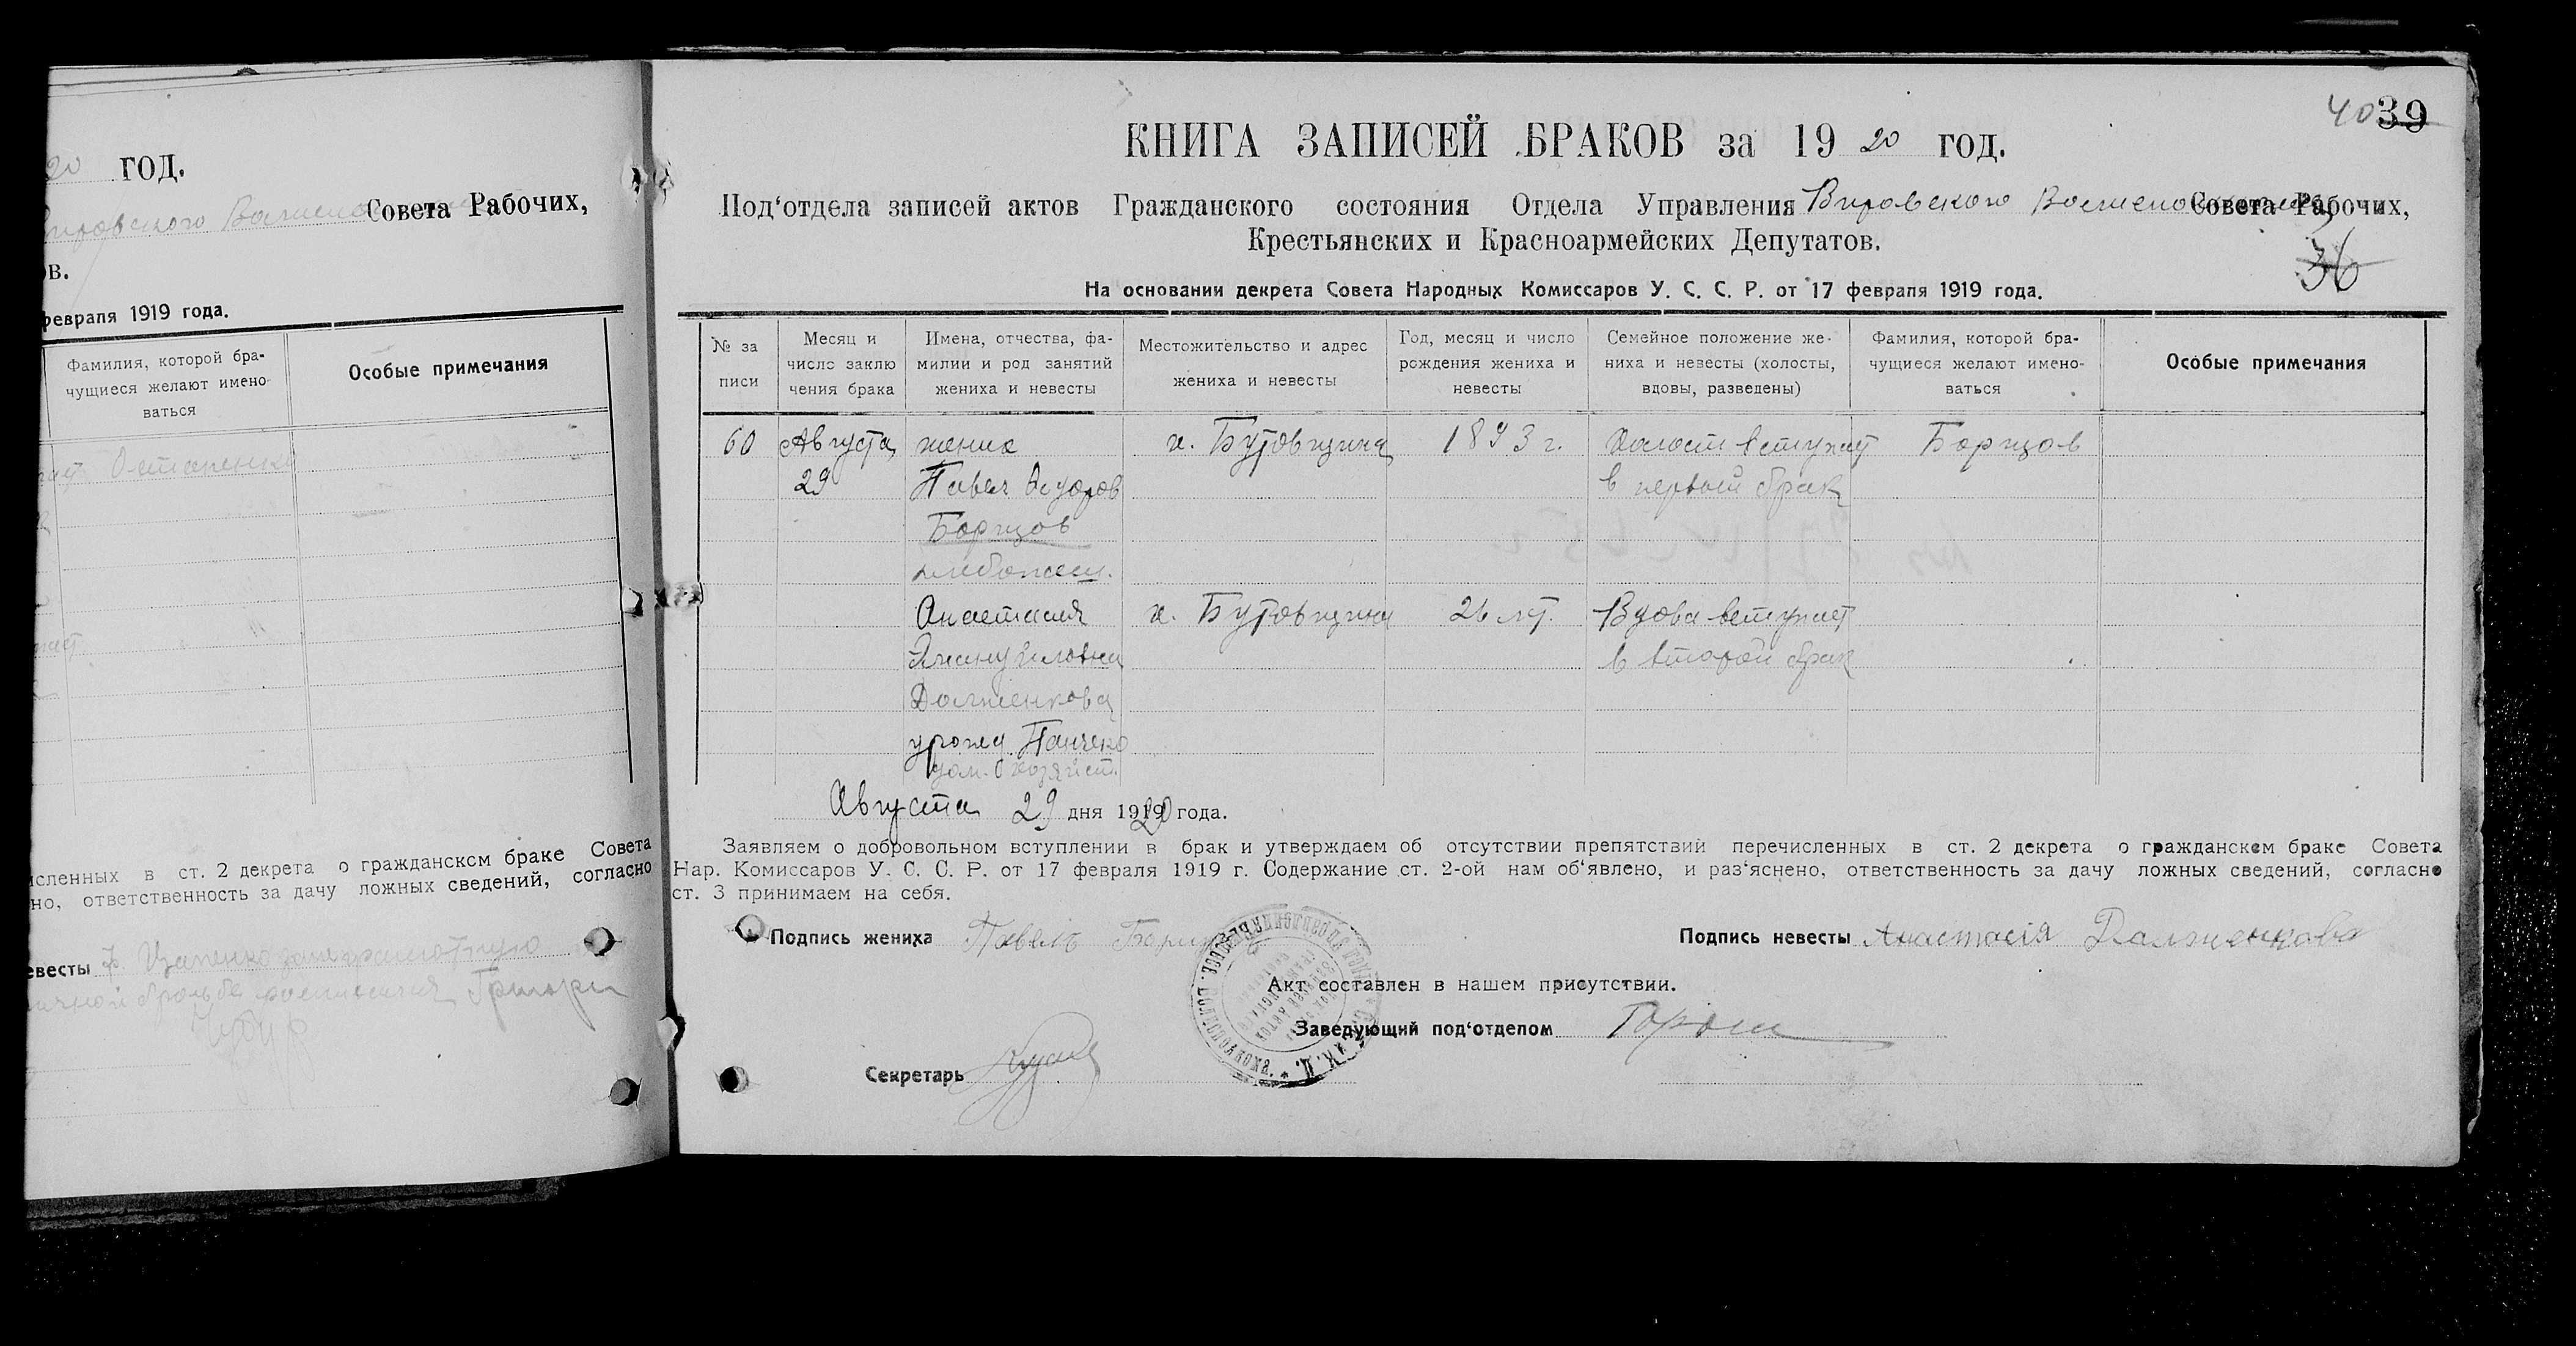 20 год.
Совета Рабочих,
ов.
февраля 1919 года.
Фамилия, которой бра-
чущиеся желают имено-
ваться
Особые примечания
Остаренко
исленных в ст. 2 декрета о гражданском браке Совета
но, ответственность за дачу ложных сведений, согласно
евесты
40 39
КНИГА ЗАПИСЕЙ БРАКОВ за 19 20 год.
Под‘отдела записей актов Гражданского состояния Отдела Управления Вировского Совета Рабочих,
Крестьянских и Красноармейских Депутатов.
36
На основании декрета Совета Народных Комиссаров У. С. С. Р. от 17 февраля 1919 года.
№ за
писи
Месяц и
число заклю
чения брака
Имена, отчества, фа-
милии и род занятий
жениха и невесты
Местожительство и адрес
жениха и невесты
Год, месяц и число
рождения жениха и
невесты
Семейное положение же-
ниха и невесты (холосты,
вдовы, разведены)
Фамилия, которой бра-
чущиеся желают имено-
ваться
Особые примечания
60 Августа жених х. Бутовщина 1893 г. Холост вступает Борцов
29 Павел Федоров в первый брак
Борцов
хлебопаш.
Анастасия х. Бутовщина 26 лт. Вдова вступает
Эмануиловна в второй брак
Долженкова
урожд. Панченко
дом. хозяйст.
Августа 29 дня 1920 года.
Заявляем о добровольном вступлении в брак и утверждаем об отсутствии препятствий перечисленных в ст. 2 декрета о гражданском браке Совета
Нар. Комиссаров У. С. С. Р. от 17 февраля 1919 г. Содержание ст. 2-ой нам об‘явлено, и раз‘яснено, ответственность за дачу ложных сведений, согласно
ст. 3 принимаем на себя.
Подпись жениха Павелъ Борцов
Подпись невесты Анастасія Долженкова
Акт составлен в нашем присутствии.
Заведующий под‘отделом
Секретарь